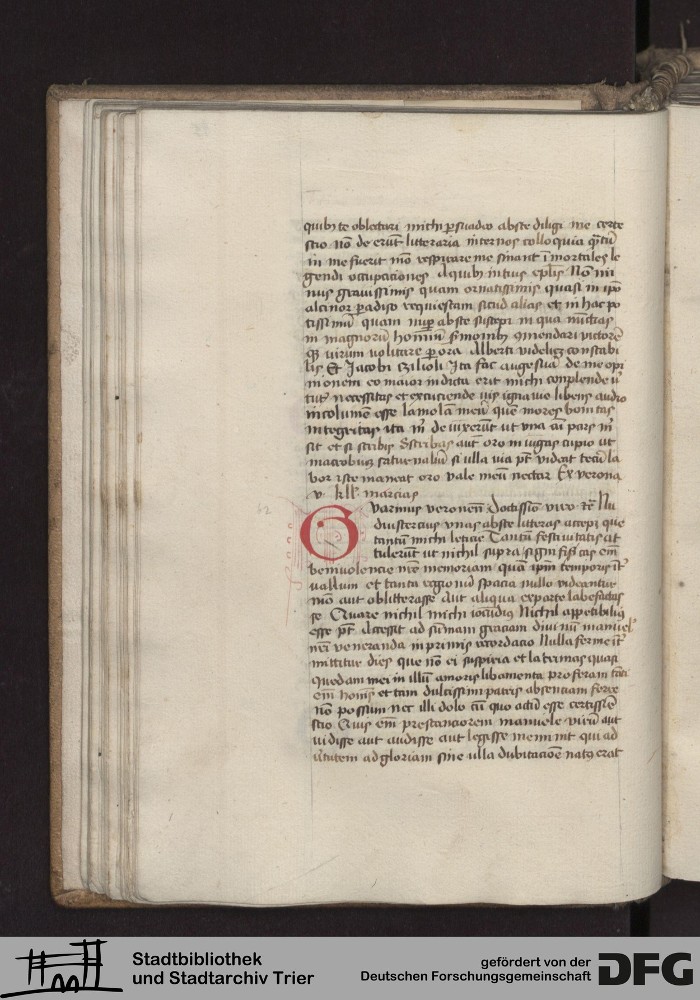 quibꝫ te oblectari michi ꝑsuadeo abs te diligi me certe
scio nō deerūt litteraria inter nos colloquia qūtū
in me fuerit mō respirare me sinant īmortales le
gendi occupaciones Aquibꝫ in tuis eplis Nō mi
nus grauissimis quam ornatissimis quasi in ipo
alcinoi ꝑadiso requiestam sicud alias et in hac po
tissimū quam nuꝑ abs te suscepi in qua
in magnorū hominū ẜmonibꝫ
virum volitare ꝑ ora Alberti videlicꝫ constabi
lis Et Jacobi Zilioli Ita fac augescat de me opi
nionem eo maior indicta erit michi conplende
necessitas et excuciende ignauie libens audio
incolumem esse lamolam meū que mores bonitas
integritas ita mͥ de vixerūt ut una aī pars mͥ
sit et si scribis Scribas aūt oro in iugas cupio ut
macrobius saturnaliū si ulla via pt videat tecū la
bor iste maneat oro vale meū nectar Ex verona
v kll marcias
Gvarinus veronen doctissio viro Nu
diustercius unas abs te litteras accepi que
tantum michi leticie Tantū festiuitatis at
tulerūt ut nichil supra signifiscas em
beniuolencie nrē memoriam quā ipm temporis it
uallum et tanta regionū spacia nullo videantur
mō aut oblitterasse Aut aliqua ex parte labefactas
se Quare nichil michi iocūdiꝰ Nichil appetibiliꝰ
esse pt Accessit ad sūmam graciam diui nrī manuel
nrī veneranda in primis recordacio Nulla ferme it
mittitur dies que nō ei suspiria et lacrimas quasi
quedam mei in illū amoris libamenta proferam tāti
em hoīs et tam dulcissimi patris absentiam ferre
nō possum nec illi dolo cū quo actū esse certissīe
scio Quis em prestanciorem manuele virū aut
vidisse aut audisse aut legisse meminit qui ad
v̄tutem ad gloriam sine ulla dubitacioē natꝰ erat
62
Stadtbibliothek
und Stadtarchiv Trier
gefördert von der
Deutschen Forschungsgemeinschaft
DFG